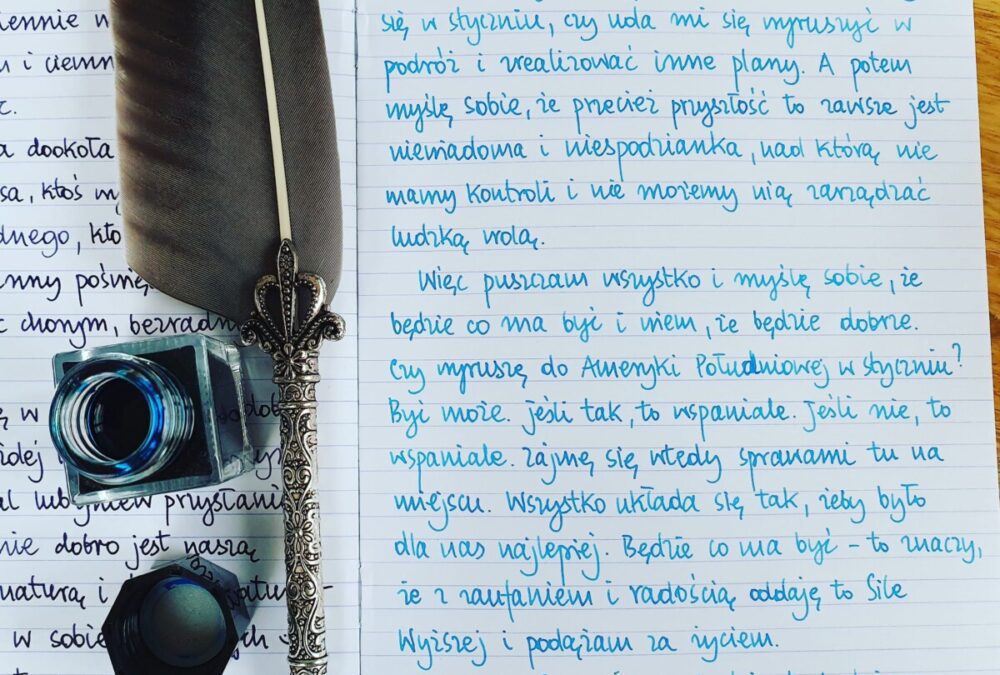 iennie
i ciemn
c.
a dookoła
sa, ktoś
dnego, kto
inny
chorym, bezradn
w
lub
nie dobro jest naszą
naturą i
w sobie
się w styczniu, czy uda mi się wyruszyć w
podróż i zrealizować inne plany. A potem
myślę sobie, że przecież przyszłość to zawsze jest
niewiadoma i niespodzianka, nad którą nie
mamy kontroli i nie możemy nią zarządzać
ludzką wolą.
Więc puszczam wszystko i myślę sobie, że
będzie co ma być i wiem, że będzie dobrze.
Czy wyruszę do Ameryki Południowej w styczniu?
Być może. Jeśli tak, to wspaniale. Jeśli nie, to
wspaniale. Zajmę się wtedy sprawami tu na
miejscu. Wszystko układa się tak, żeby było
dla nas najlepiej. Będzie co ma być - to znaczy,
że z zaufaniem i radością oddaję to Sile
Wyższej i podążam za życiem.